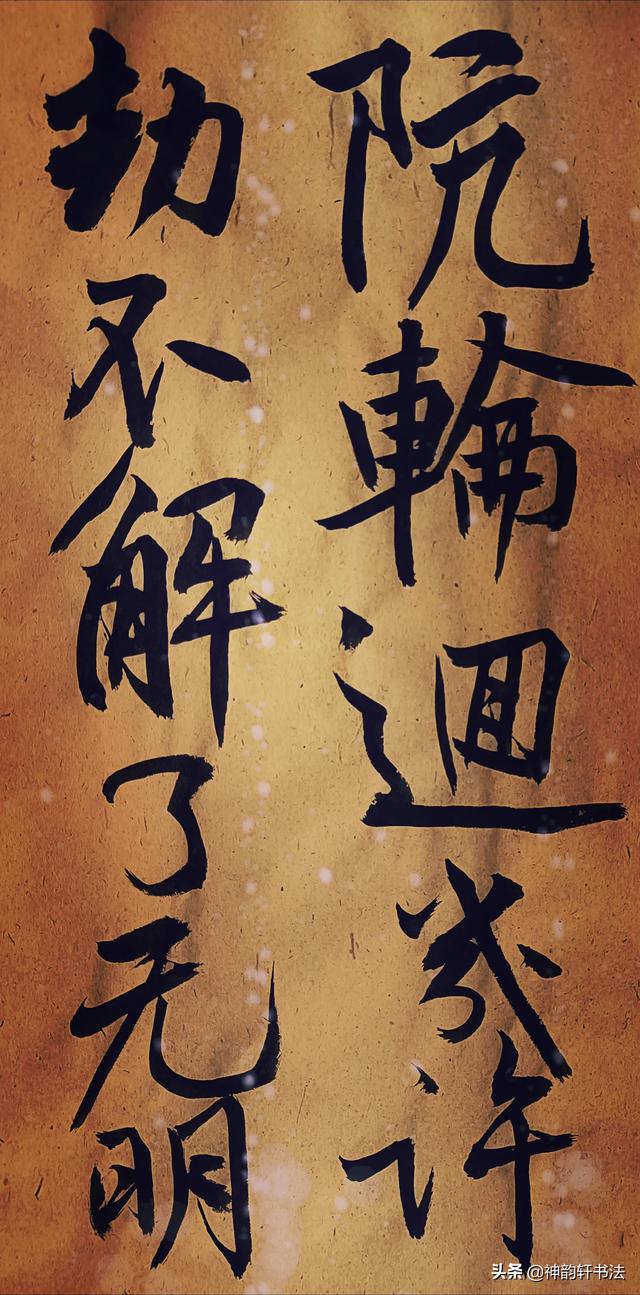 阮輪迴幾許
劫不解了无明
头条 @神韵轩书法